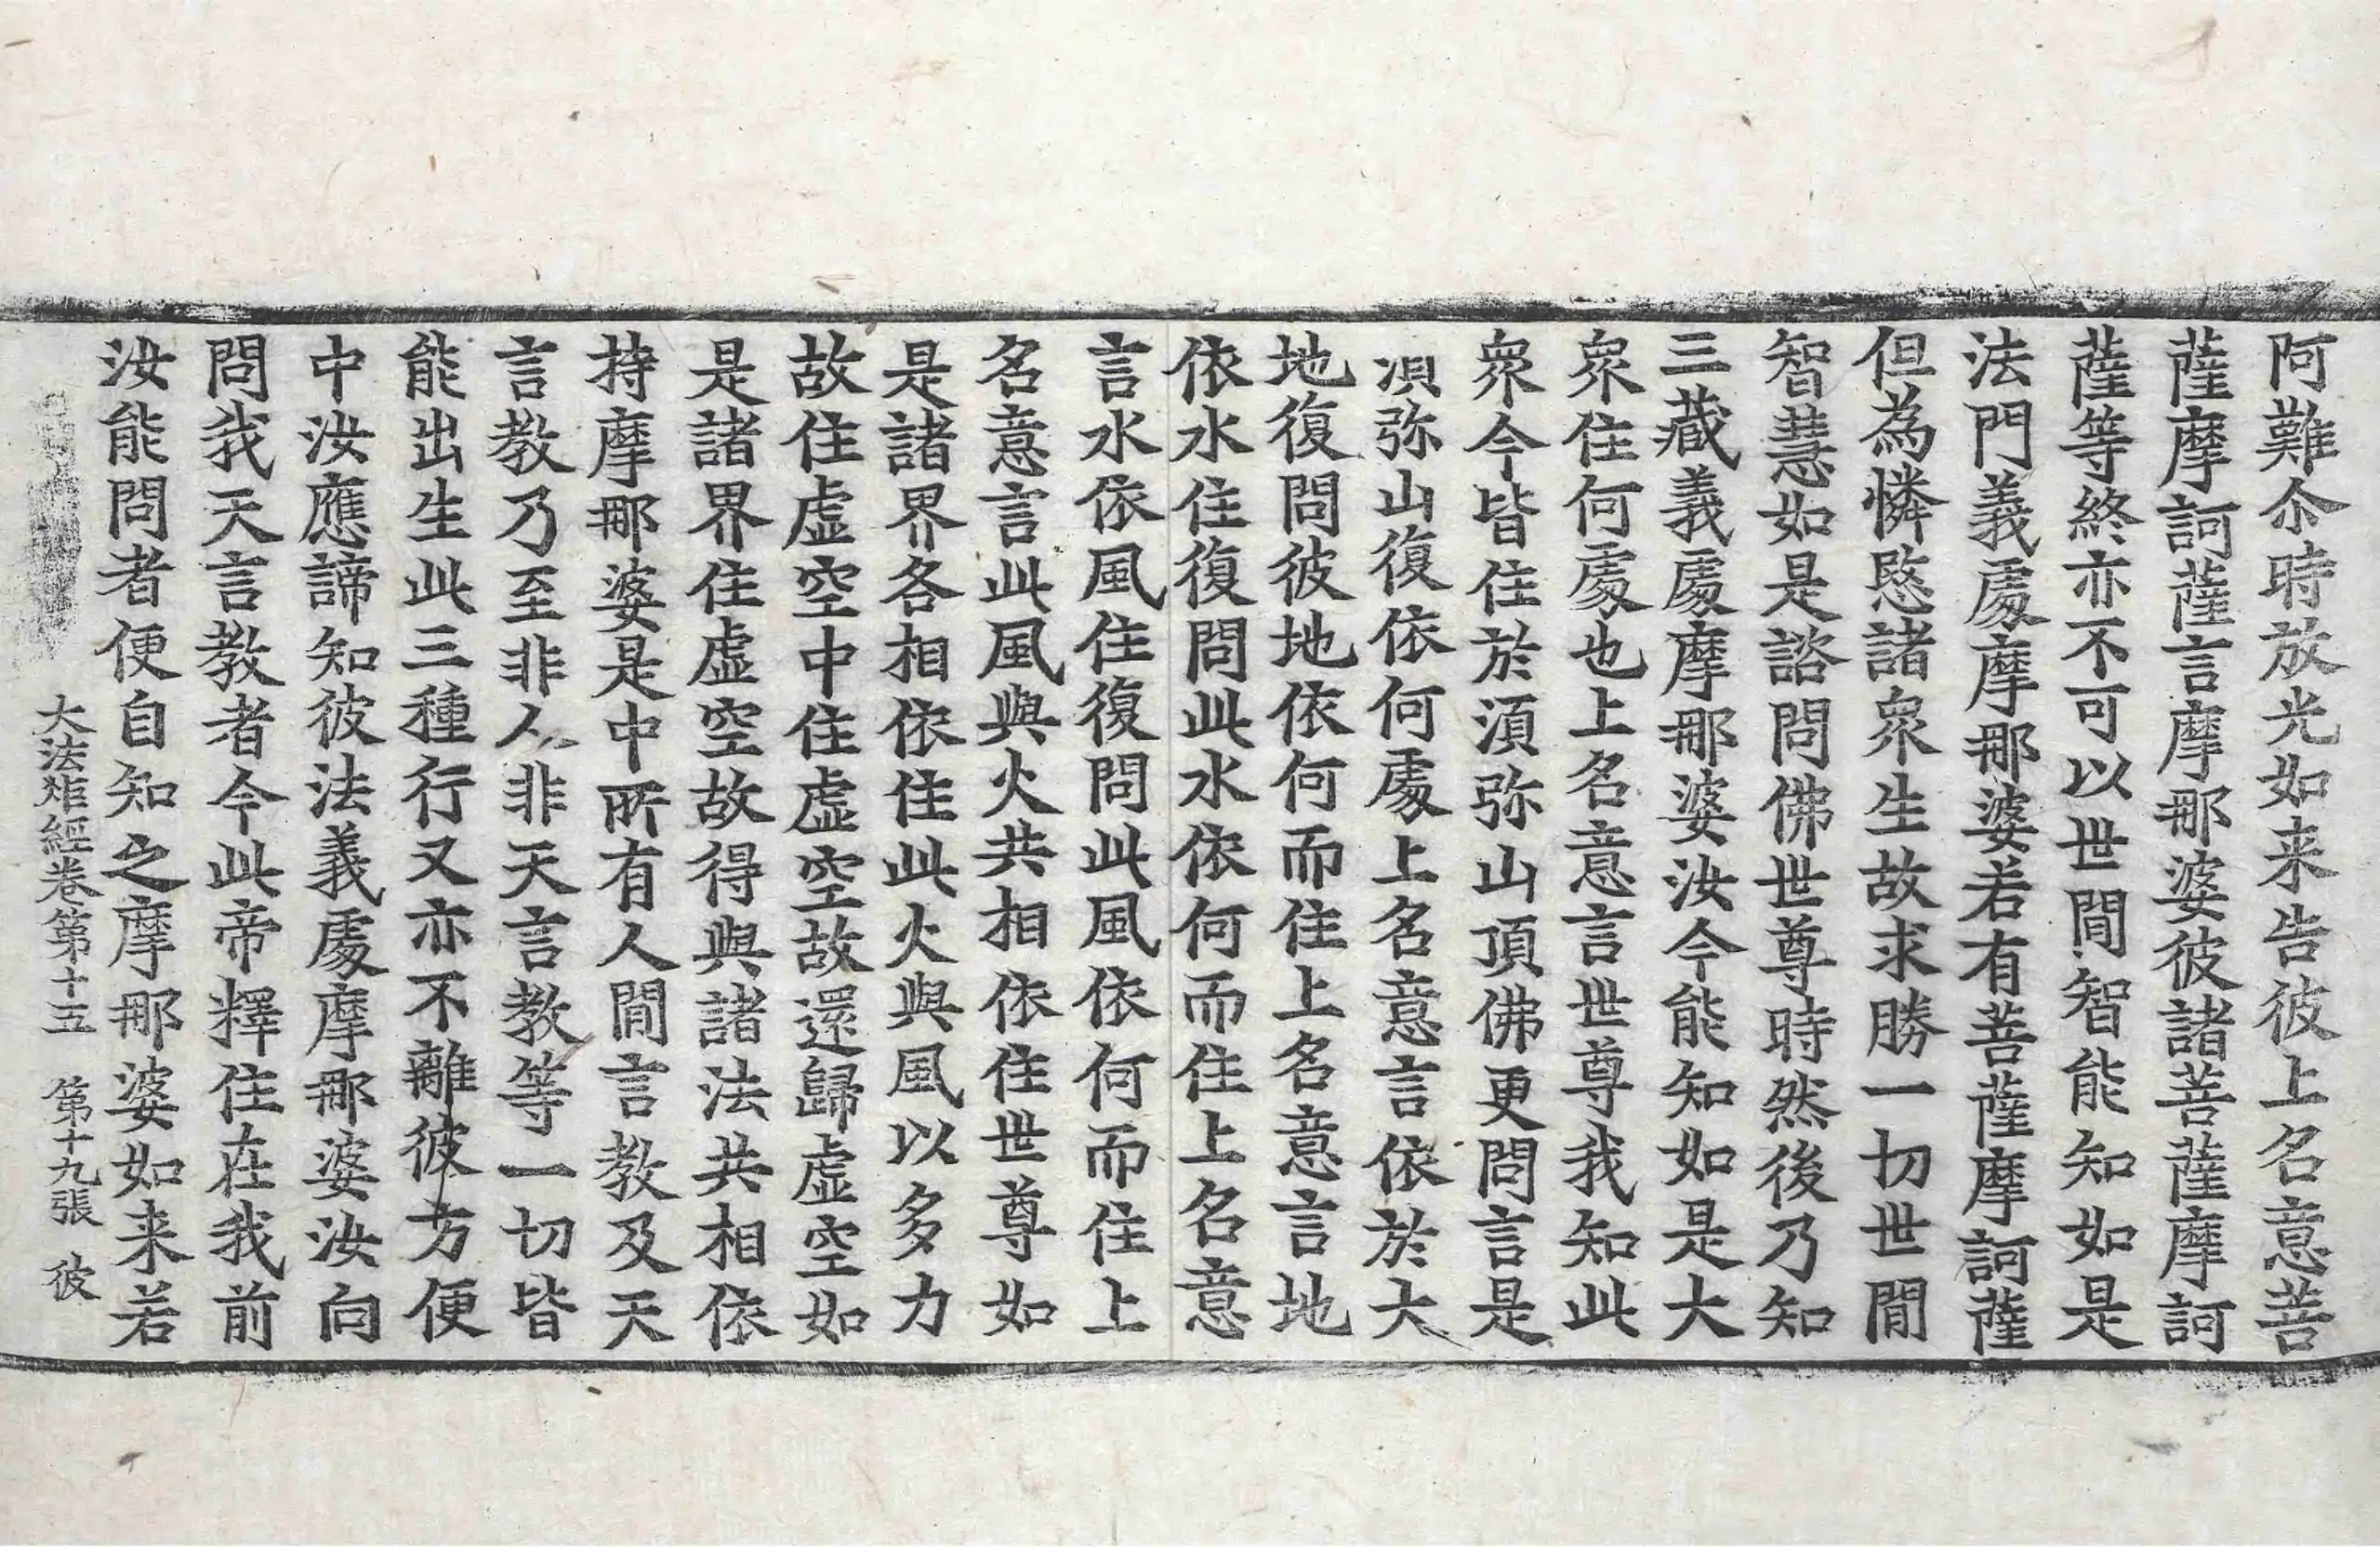 阿難尒時放光如来告彼上名意菩
薩摩訶薩言摩那婆彼諸菩薩摩訶
薩等終亦不可以世間智能知如是
法門義處摩那婆若有菩薩摩訶薩
但為憐愍諸衆生故求勝一切世間
智慧如是諮問佛世尊時然後乃知
三藏義處摩那婆汝今能知如是大
衆住何處也上名意言世尊我知此
衆今皆住於湏弥山頂佛更問言是
湏弥山復依何處上名意言依於大
地復問彼地依何而住上名意言地
依水住復問此水依何而住上名意
言水依風住復問此風依何而住上
名意言此風與火共相依住世尊如
是諸界各相依住此火與風以多力
故住虚空中住虚空故還歸虚空如
是諸界住虚空故得與諸法共相依
持摩那婆是中所有人間言教及天
言教乃至非人非天言教等一切皆
能出生此三種行又亦不離彼方便
中汝應諦知彼法義處摩那婆汝向
問我天言教者今此帝釋住在我前
汝能問者便自知之摩那婆如来若
大法炬經卷第十五 第十九張 彼